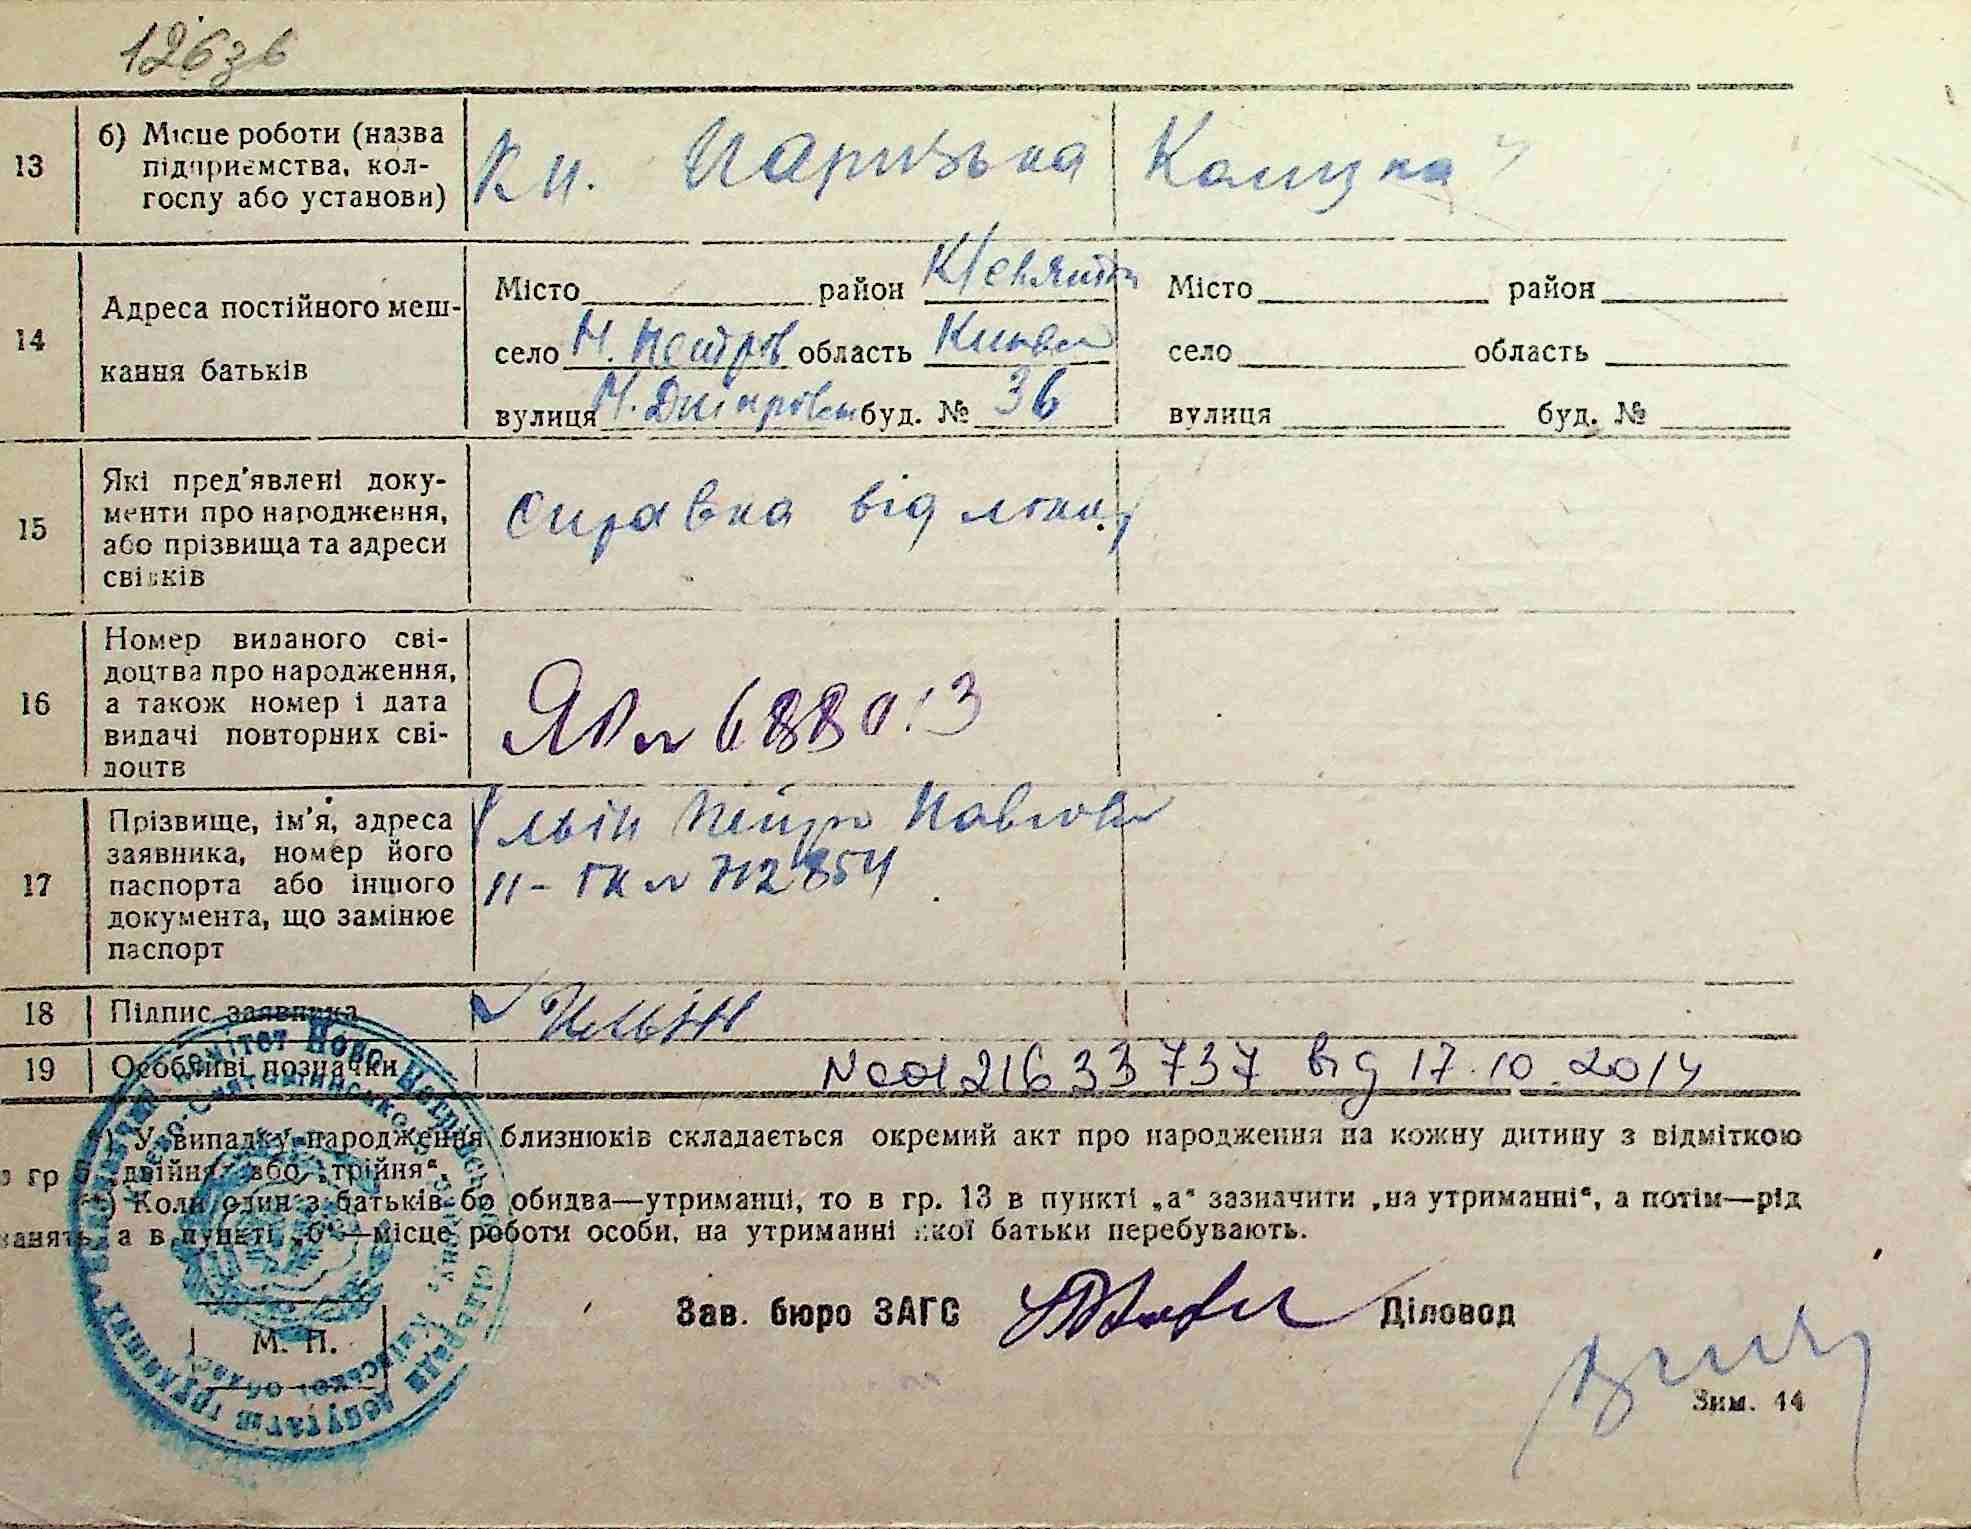 126зв
13 б) Місце роботи (назва підприємства, колгоспу або установи) Кл. Паризька Комуна"
14 Адреса постійного мешкання батьків
Місто район К/Святош Місто район
село П. Петрів область Київск село область
вулиця буд. № 36 вулиця буд. №
15 Які пред'явлені документи про народження, або прізвища та адреси свідків
Справка від лікар
16 Номер виданого свідоцтва про народження, а також номер і дата видачі повторних свідоцтв
17 Прізвище, ім'я, адреса заявника, номер його паспорта або іншого документа, що замінює паспорт
Ільін Петро Павлов
18 Підпис заявника Ильін
19 Особливі позначки N00121633737 від 17.10.2014
*) У випадку народження близнюків складається окремий акт про народження на кожну дитину з відміткою
в гр 5 „двійня" або „трійня".
**) Коли один з батьків бо обидва—утриманці, то в гр. 13 в пункті „а" зазначити „на утриманні", а потім—рід
занять, а в пункті „б"—місце роботи особи, на утриманні якої батьки перебувають.
Зав. бюро ЗАГС Діловод
М. П.
Зим. 44